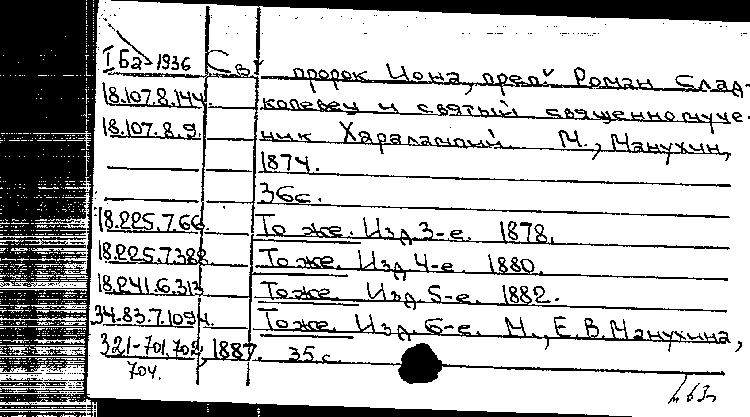 I Ба-1936 Св. пророк Иона, преп. Роман Слад-
18.107.8.144 копевец и святый священномуче-
18.107.8.9. ник Харалампий. М., Манухин,
1874.
36 с.
18.225.7.66. То же. Изд. 3-е. 1878.
18.225.7.382. То же. Изд. 4-е. 1880.
18.241.6.313 То же. Изд. 5-е. 1882.
34.83.7.1094. То же. Изд. 6-е. М., Е.В. Манухина,
321-701.702, 1887. 35 с.
704.